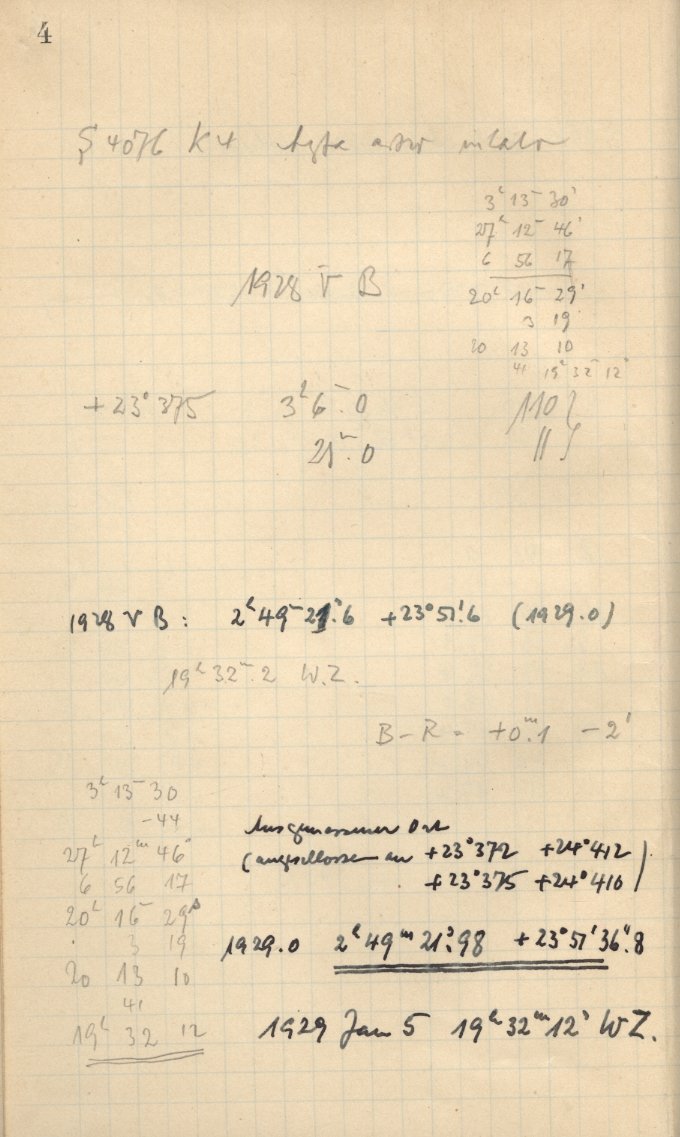 4
§ 4076 K4
3ʰ 13ᵐ 30ˢ
27ʰ 12ᵐ 46ˢ
6 56 17
20ʰ 16ᵐ 29ˢ
3 19
20 13 10
41 19ʰ 32ᵐ 12ˢ
1928 V B
+23°375 3ʰ6ᵐ.0
21ᵐ.0
110
11
1928 V B : 2ʰ49ᵐ21ˢ.6 +23°51'.6 (1929.0)
19ʰ32ᵐ.2 W.Z.
B-R = +0ᵐ.1 -2'
3ʰ 13ᵐ 30
-44
27ʰ 12ᵐ 46ˢ
6 56 17
20ʰ 16ᵐ 29ˢ
3 19
20 13 10
41
19ʰ 32 12
Ausgemessener Ort
(angeschlossen an +23°372 +24°412
+23°375 +24°410)
1929.0 2ʰ49ᵐ21ˢ.98 +23°51'36".8
1929 Jan 5 19ʰ32ᵐ12ˢ WZ.